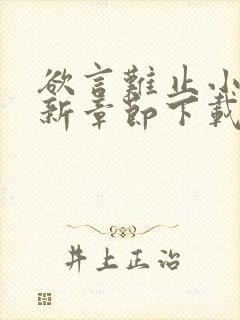 欲言難止小
新章節下載
井上正治